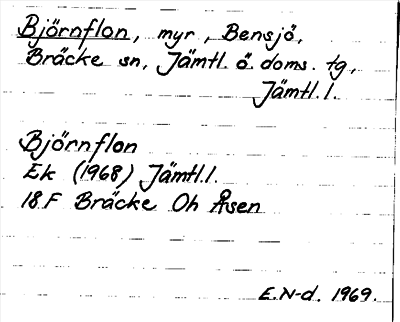 Björnflon, myr, Bensjö,
Bräcke sn, Jämtl. ö. doms. tg,
Jämtl. l.
Björnflon
Ek (1968) Jämtl.l.
18 F Bräcke Oh Åsen
E.N-d. 1969.